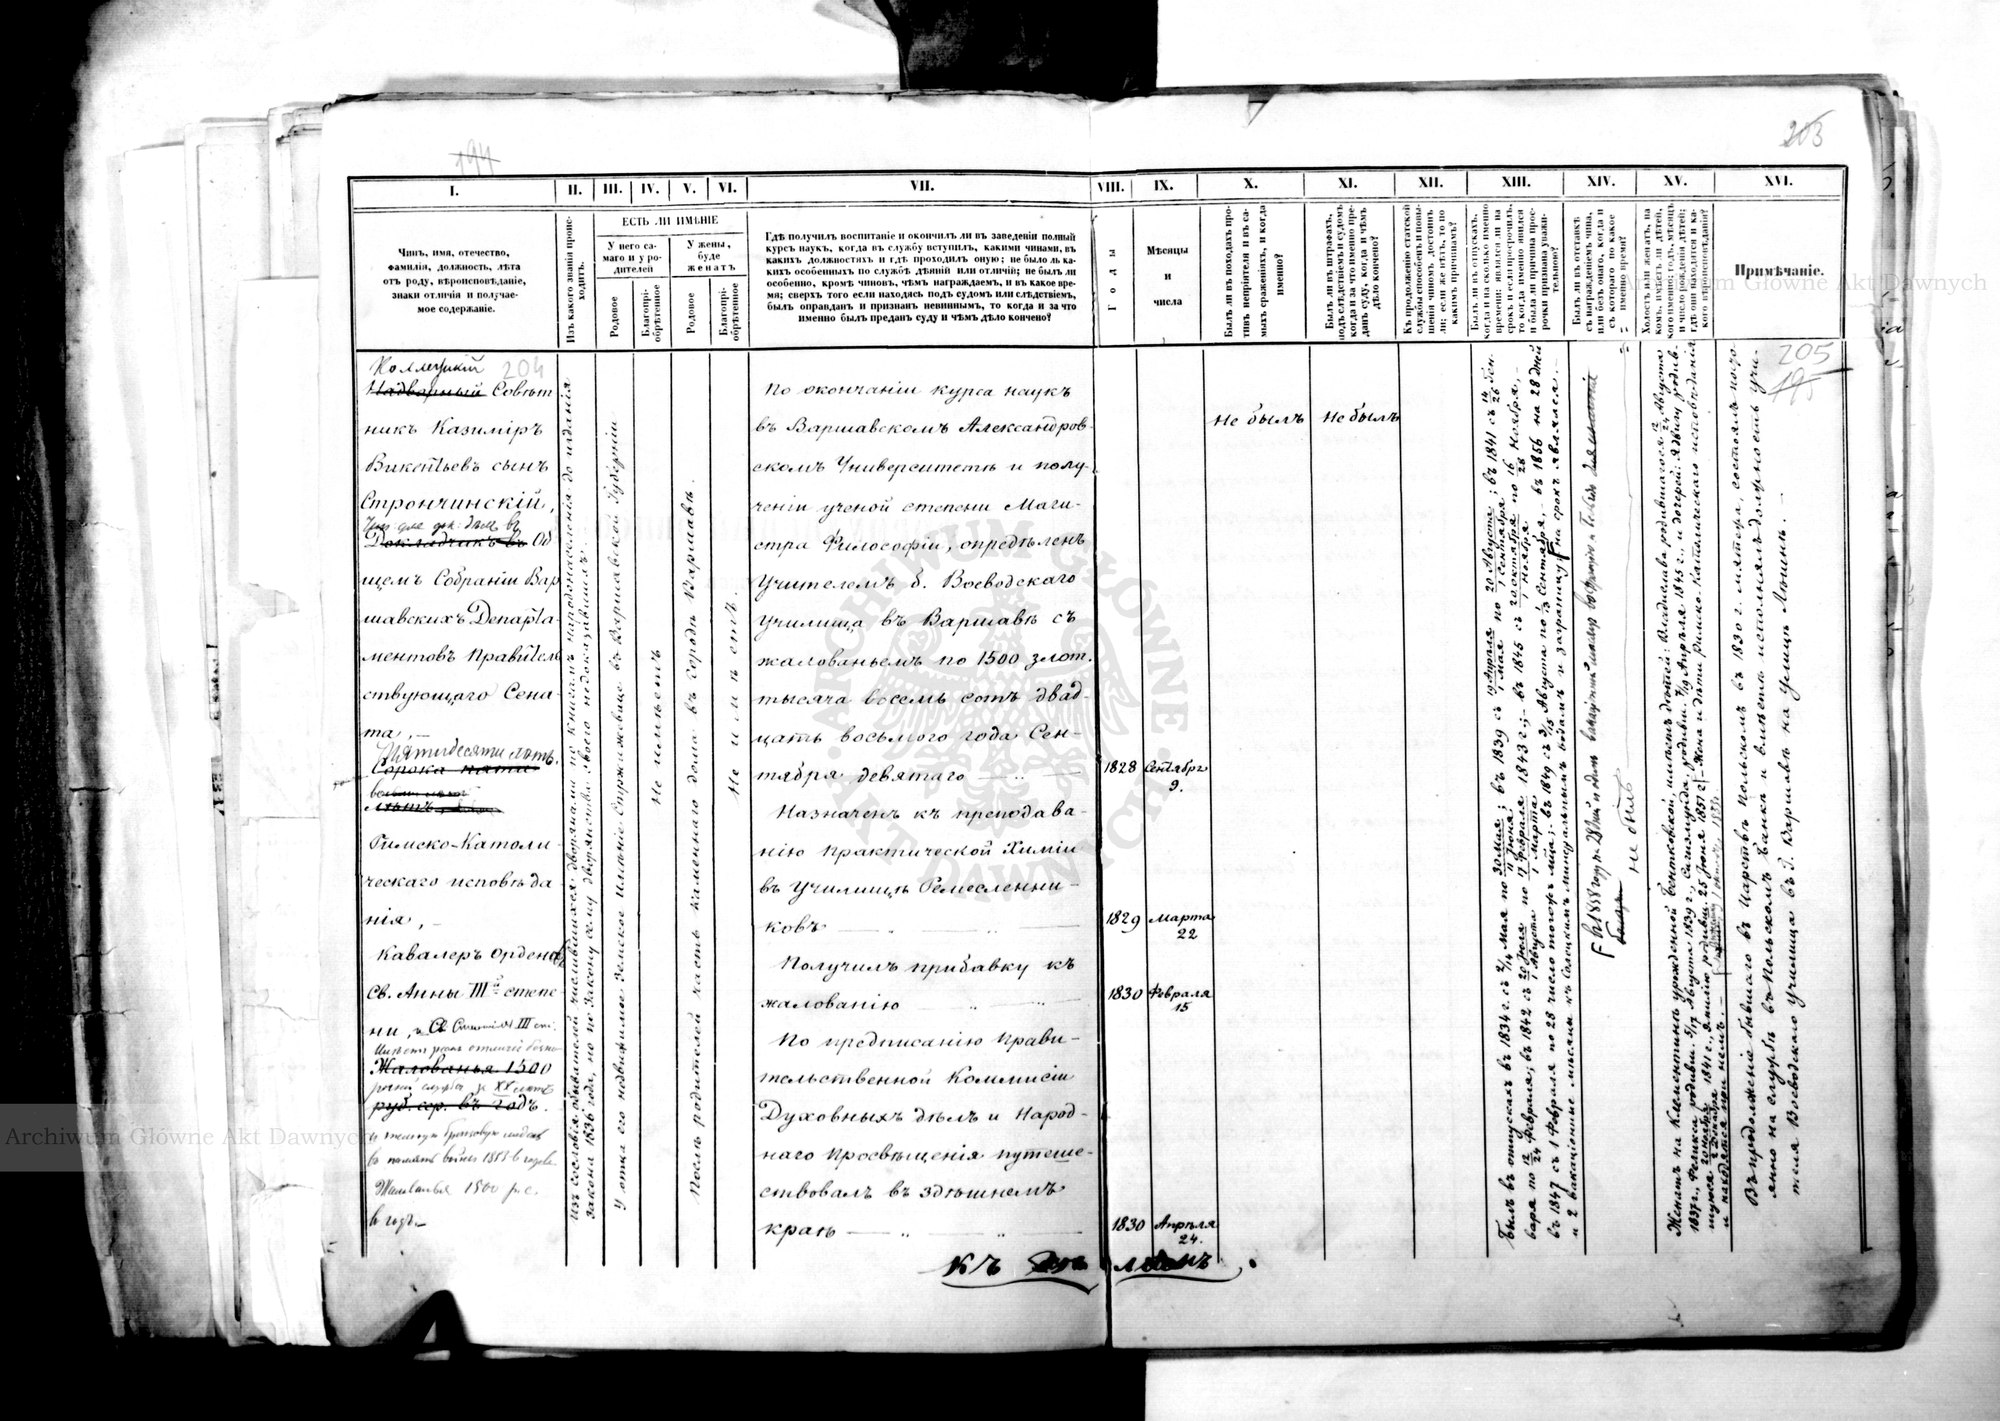 194
203
I.
II.
III.
IV.
V.
VI.
VII.
VIII.
IX.
X.
XI.
XII.
XIII.
XIV.
XV.
XVI.
Чинъ, имя, отечество,
фамилія, должность, лѣта
отъ роду, вѣроисповѣданіе,
знаки отличія и получае-
мое содержаніе.
Изъ какого званія проис-
ходитъ.
ЕСТЬ ЛИ ИМѢНІЕ
У него са-
маго и у ро-
дителей
У жены,
буде
женатъ
Родовое
Благопрі-
обрѣтенное
Родовое
Благопрі-
обрѣтенное
Гдѣ получилъ воспитаніе и окончилъ ли въ заведеніи полный
курсъ наукъ, когда въ службу вступилъ, какими чинами, въ
какихъ должностяхъ и гдѣ проходилъ оную; не было ль ка-
кихъ особенныхъ по службѣ дѣяній или отличій; не былъ ли
особенно, кромѣ чиновъ, чѣмъ награждаемъ, и въ какое вре-
мя; сверхъ того если находясь подъ судомъ или слѣдствіемъ,
былъ оправданъ и признанъ невиннымъ, то когда и за что
именно былъ преданъ суду и чѣмъ дѣло кончено?
Годы
Мѣсяцы
и
числа
Былъ ли въ походахъ про-
тивъ непріятеля и въ са-
мыхъ сраженіяхъ, и когда
именно?
Былъ ли въ штрафахъ,
подъ слѣдствіемъ и судомъ
когда и за что именно пре-
данъ суду, когда и чѣмъ
дѣло кончено?
Къ продолженію статской
службы способенъ и повы-
шенія чиномъ достоинъ
ли; если же нѣтъ, то по
какимъ причинамъ?
Былъ ли въ отпускахъ,
когда и на сколько именно
времени; являлся ли на
срокъ и если просрочилъ,
то когда именно явился
и была ли причина прос-
рочки признана уважи-
тельною?
Былъ ли въ отставкѣ
съ награжденіемъ чина,
или безъ онаго, когда и
съ котораго по какое
именно время?
Холостъ или женатъ, на
комъ, имѣетъ ли дѣтей,
кого именно; годъ, мѣсяцъ
и число рожденія дѣтей;
гдѣ они находятся и ка-
кого вѣроисповѣданія?
Примѣчаніе.
Коллежскій
204
Надворный Совѣт
никъ Казиміръ
Викентьевъ сынъ
Стрончинскій,
Докладчикъ въ Об
щемъ Собраніи Вар
шавскихъ Департа-
ментовъ Правитель
ствующаго Сена-
та, —
Пятидесяти лѣтъ.
Сорока пяти
лѣтъ
Римско-Католи
ческаго исповѣда
нія, —
Кавалеръ Ордена
Св. Анны IIIй степе-
ни, и Св. III ст.
Имѣетъ знакъ отличія безпо-
Жалованья 1500
рочной службы за XX лѣтъ
руб. сер. въ годъ.
и темную бронзовую медаль
въ память войны 1853-6 годовъ
Жалованья 1500 р. с.
въ годъ. —
Изъ сословія обывателей, числившихся дворянами по книгамъ народонаселенія до изданія
Закона 1836 года, но по Закону сему дворянства своего недоказавшихъ.
У отца его недвижимое Земское имѣніе въ Варшавской Губерніи
Не имѣетъ
Послѣ родителей часть каменнаго дома въ городѣ Варшавѣ.
Не имѣетъ.
По окончаніи курса наукъ
въ Варшавскомъ Александров-
скомъ Университетѣ и полу-
ченіи ученой степени Маги-
стра Философіи, опредѣленъ
Учителемъ б. Воеводскаго
Училища въ Варшавѣ съ
жалованьемъ по 1500 злот.
тысяча восемь сотъ двад-
цать восьмого года Сен-
тября девятаго
1828 Сентября
9.
Назначенъ къ преподава-
нію практической Химіи
въ Училищѣ Ремесленни-
ковъ
1829 Марта
22
Получилъ прибавку къ
жалованію
1830 Февраля
15
По предписанію Прави-
тельственной Коммисіи
Духовныхъ дѣлъ и Народ-
наго Просвѣщенія путеше-
ствовалъ въ здѣшнемъ
краѣ
1830 Апрѣля
24.
Не былъ
Не былъ
Былъ въ отпускахъ въ 1834 г. съ 2/14 Мая по 30 Мая/11 Іюня; въ 1839 съ 19 Апрѣля/1 Мая по 20 Августа/1 Сентября; въ 1841 съ 14/26 Сен-
варя по 12/24 Февраля; въ 1842 съ 20 Іюля/1 Августа по 17 Февраля/1 Марта 1843 г.; въ 1845 съ 20 Октября/ Ноября по 16/28 Ноября, —
въ 1847 съ 1 Февраля по 28 число тогожъ м-ца; въ 1849 съ 3/15 Августа по Сентября, — въ 1856 на 28 дней
и 2 вакаціонные мѣсяцы къ Солецкимъ минеральнымъ водамъ и заграницу F на срокъ являлся. —
не былъ
Женатъ на Клементинѣ урожденной Бентковской, имѣетъ дѣтей: Владислава родившагося 12/24 Августа
1837 г., Феликса родивш. 5/17 Августа 1839 г., Сигизмунда родивш. 7/19 Апрѣля 1843 г., и дочерей: Ядвигу родив-
шуюся 20 Ноября/2 Декабря 1841 г., Эмилію родивш. 25 Іюня 1851 г. — Жена и дѣти Римско-Католическаго исповѣданія
и находятся при немъ. —
205
195
Въ продолженіе бывшаго въ Царствѣ Польскомъ въ 1830 г. мятежа, состоялъ посто-
янно на службѣ въ Польскомъ Банкѣ и вмѣстѣ исполнялъ должность учи-
теля Воеводскаго училища въ д. Варшавѣ на улицѣ Лешнѣ. —
Archiwum Główne Akt Dawnych
ARCHIWUM GŁÓWNE
AKT DAWNYCH
Archiwum Główne Akt Dawnych